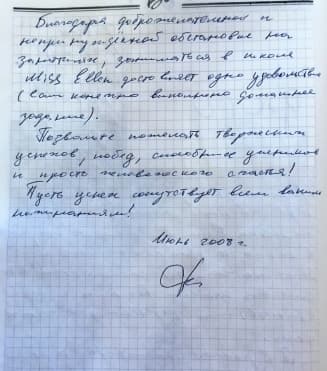 Благодаря доброжелательной и
непринуждённой обстановке на
занятиях, заниматься в школе
Miss Ellen доставляет одно удовольствие
(если конечно выполнено домашнее
задание).
Позвольте пожелать творческих
успехов, побед, способных учеников
и просто человеческого счастья!
Пусть успех сопутствует всем вашим
начинаниям!
Июнь 2008 г.